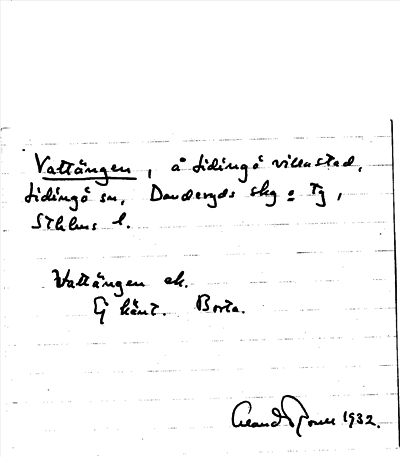 Vallängen, å Lidingö villastad,
Lidingö sn, Danderyds skg o tg,
Sthlms l.
Vallängen ek.
Ej känt. Borta.
1932.